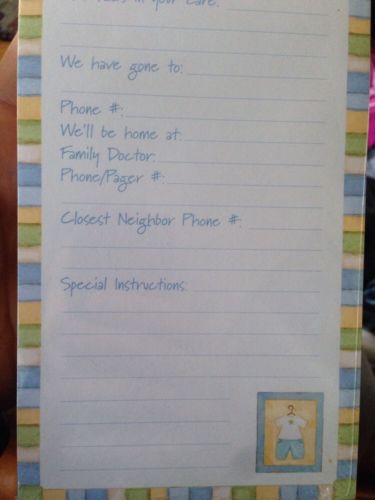 in your care:
We have gone to:
Phone #:
We'll be home at:
Family Doctor:
Phone/Pager #:
Closest Neighbor Phone #:
Special Instructions: